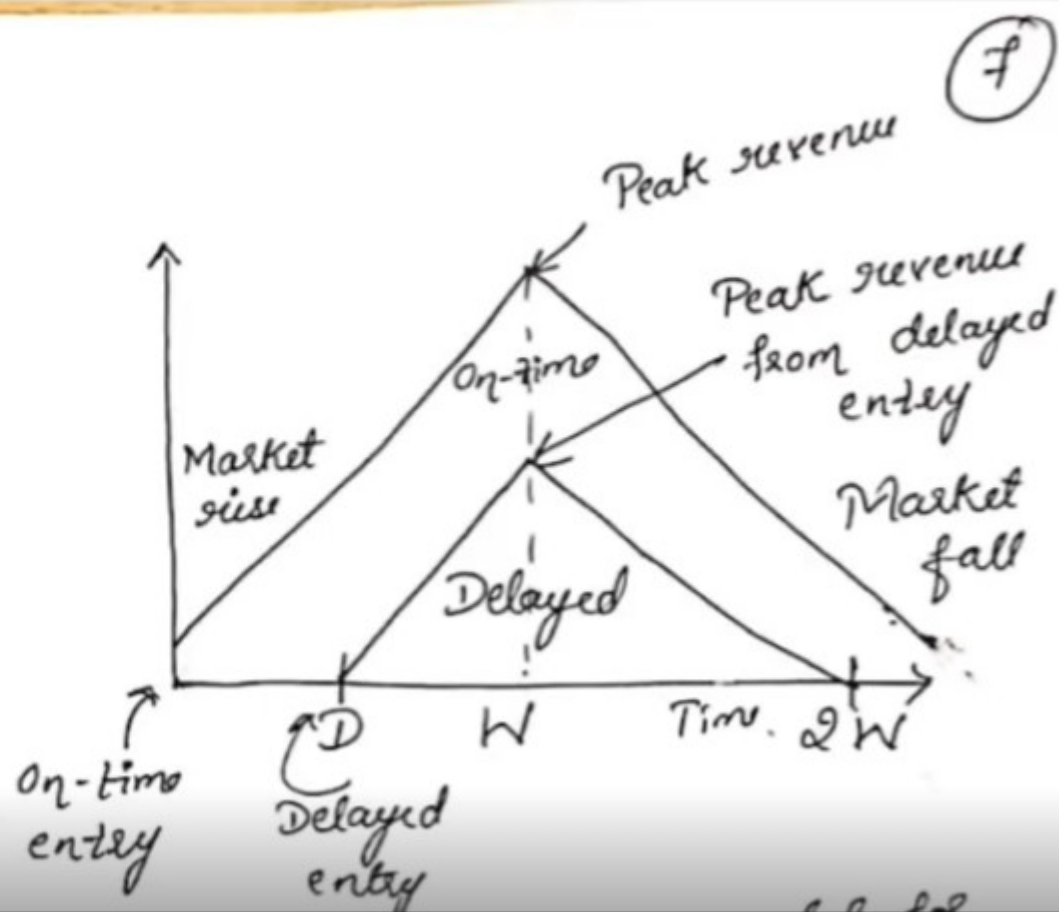 7
Peak revenue
Peak revenue
from delayed
entry
On-time
Market
rise
Market
fall
Delayed
D
W
Time.
2W
On-time
entry
Delayed
entry